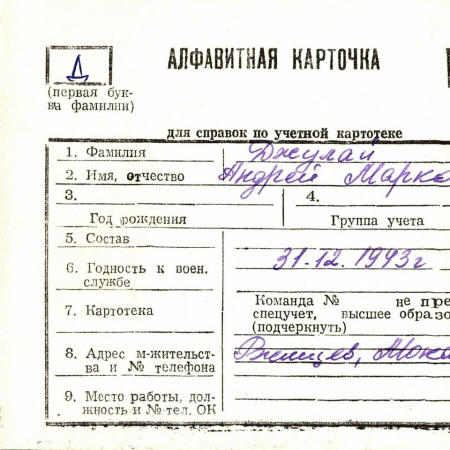 Д
АЛФАВИТНАЯ КАРТОЧКА
(первая бук-
ва фамилии)
для справок по учетной картотеке
1. Фамилия Джулай
2. Имя, отчество Андрей Марко
3. 4.
Год рождения Группа учета
5. Состав
31.12.1943г
6. Годность к воен.
службе
7. Картотека
Команда № не пре
спецучет, высшее образо
(подчеркнуть)
8. Адрес м-жительст-
ва и № телефона
9. Место работы, дол-
жность и № тел. ОК